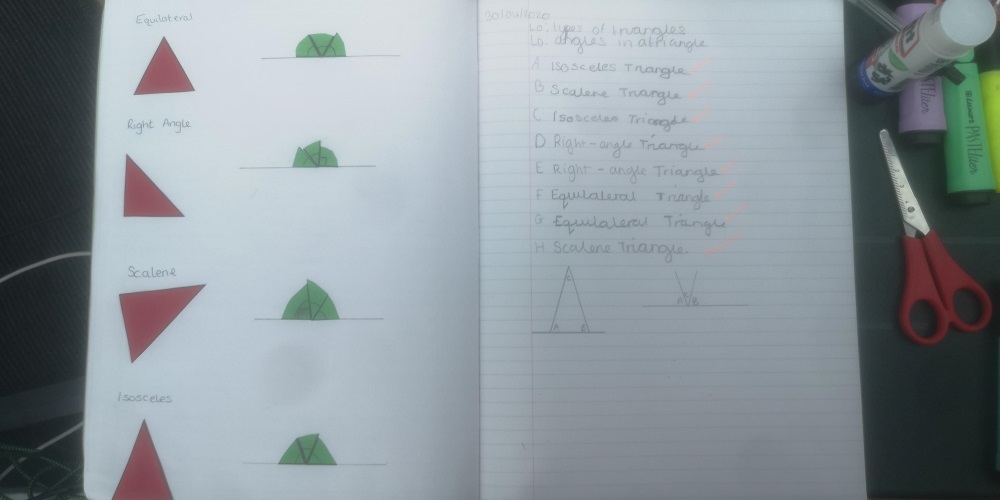 Equilateral
Right Angle
Scalene
Isosceles
Lo: types of triangles
Lo: angles in a triangle
A Isosceles Triangle
B Scalene Triangle
C Isosceles Triangle
D Right-angle Triangle
E Right-angle Triangle
F Equilateral Triangle
G Equilateral Triangle
H Scalene Triangle.
A B
Pritt